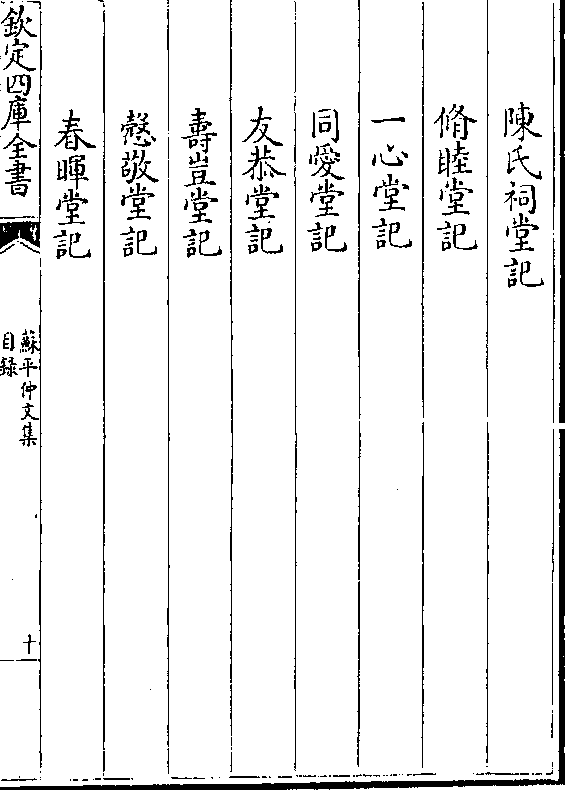 陳氏祠堂記
脩睦堂記
一心堂記
同愛堂記
友恭堂記
壽豈堂記
慤敬堂記
春暉堂記
欽定四庫全書
蘇平仲文集
目録
十